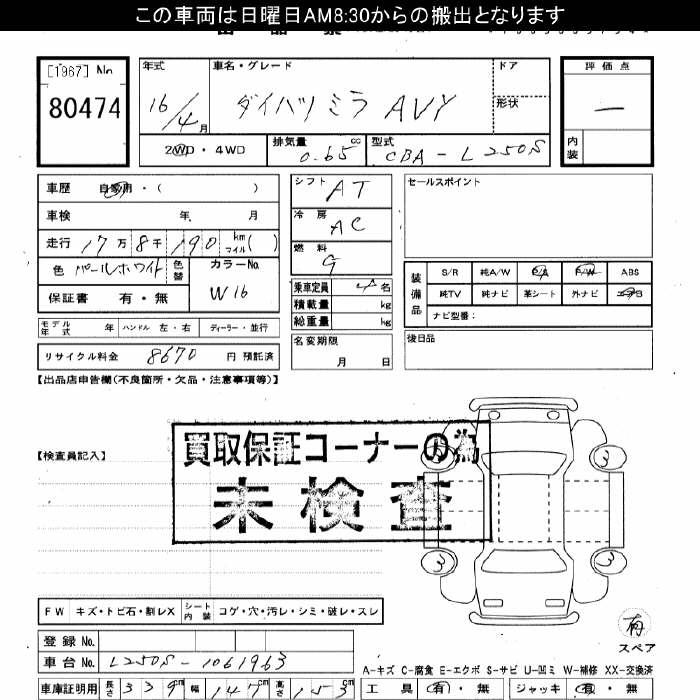 この車両は日曜日AM8:30からの搬出となります
[1967] No
80474
年式 車名・グレード ドア 評価点
16/4月 ダイハツミラ AVY 形状 —
2WD・4WD 排気量 0.65 cc 型式 CBA-L250S 内装
車歴 自家用・( ) シフト AT セールスポイント
車検 年 月 冷房 AC
走行 17万8千190 km マイル( ) 燃料 G
色 パールホワイト 色替 カラーNo. W16
保証書 有・無
乗車定員 4名
積載量 kg
総重量 kg
装備品 S/R 純A/W P/S P/W ABS
純TV 純ナビ 革シート 外ナビ エアB
ナビ型番:
モデル年式 年 ハンドル 左・右 ディーラー・並行
名変期限 月 日
後日品
リサイクル料金 8670 円 預託済
【出品店申告欄(不良箇所・欠品・注意事項等)】
買取保証コーナーの為
未検査
【検査員記入】
3
3
3
FW キズ・トビ石・割レX シート内装 コゲ・穴・汚レ・シミ・破レ・スレ
有
スペア
登録 No.
車台 No. L250S-1061963
A-キズ C-腐食 E-エクボ S-サビ U-凹ミ W-補修 XX-交換済
車庫証明用 長さ 339cm 幅 147cm 高さ 153cm
工具 有・無 ジャッキ 有・無